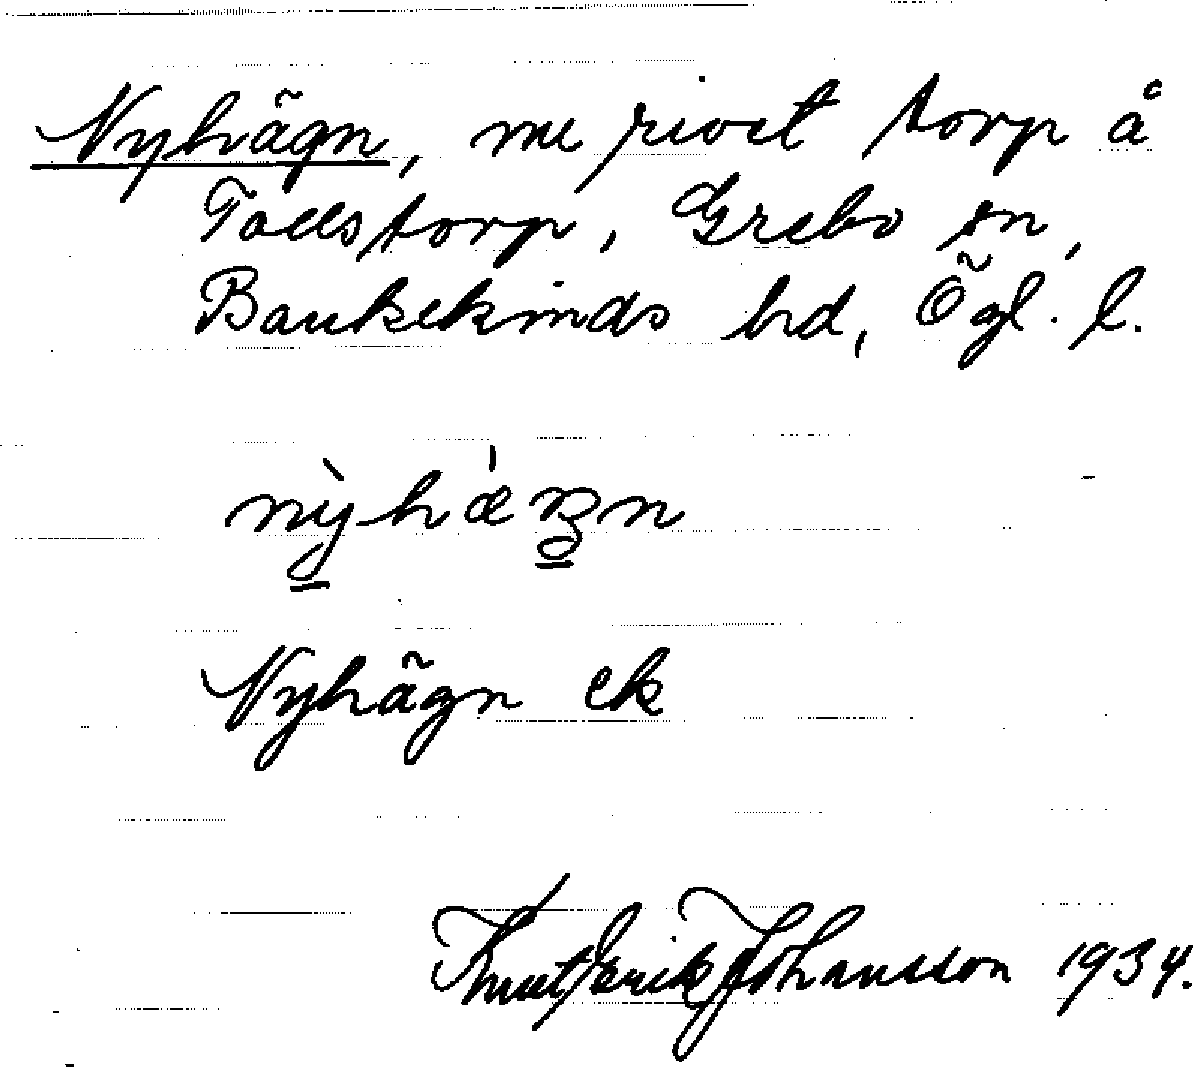 Nyhägn, nu rivet torp å
Tollstorp, Grebo sn,
Bankekinds hd, Ögl. l.
Nyhägn ek
Knut Erik Johansson 1934.